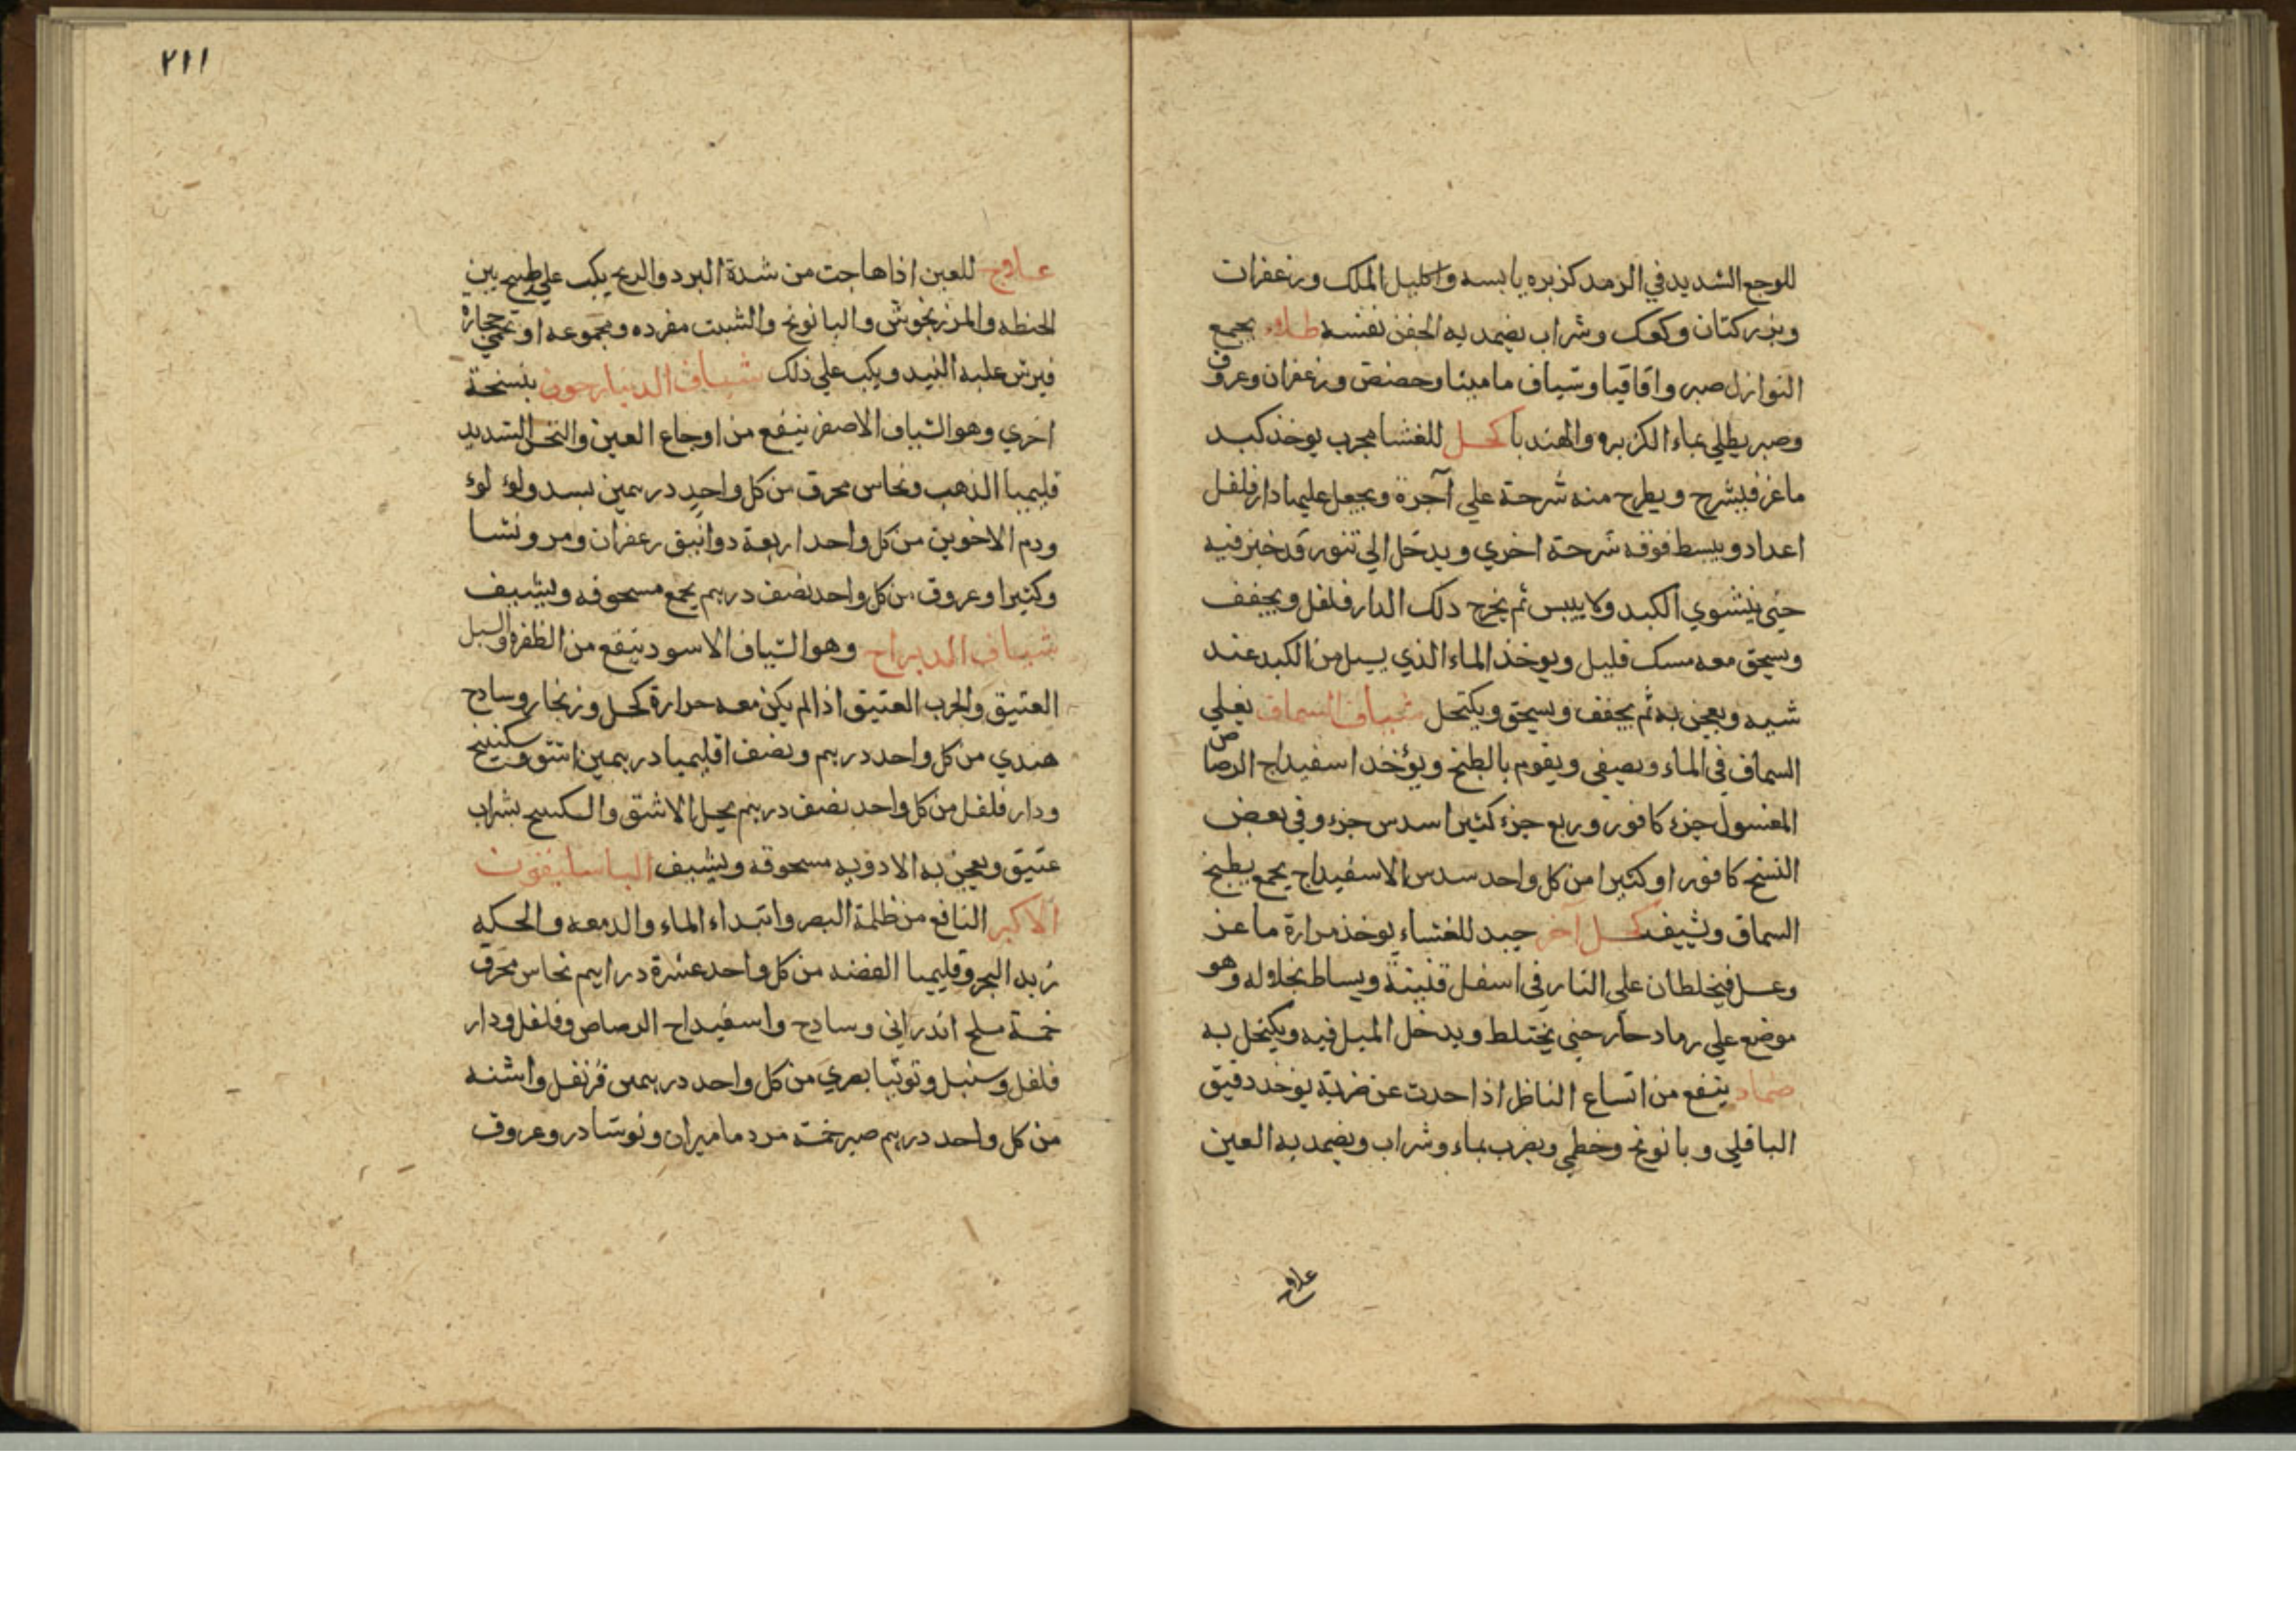 للوجع الشديد في الرمد كزبره يابسه واكليل الملك وزعفران
وبزر كتان وكعك وشراب يضمد به الجفن نفسه طلاء يجمع
النوازل صبر واقاقيا وشياف ماميثا وحضض وزعفران وعروق
وصبر يطلي بماء الكزبره والهندبا كحل للغشا مجرب يوخذ كبد
ماعز فيشرح ويطرح منه شرحة علي آجرة ويجعل عليها دارفلفل
اعداد ويبسط فوقه شرحة اخري ويدخل الي تنور قد خبز فيه
حتي ينشوي الكبد ولا ييبس ثم يخرج ذلك الدارفلفل ويجفف
ويسحق معه مسك قليل ويوخذ الماء الذي يسيل من الكبد عند
شيه ويعجن به ثم يجفف ويسحق ويكتحل شياف السماق يغلي
السماق في الماء ويصفي ويقوم بالطبخ ويؤخذ اسفيداج الرصاص
المغسول جزء كافور وربع جزء كثيرا سدس جزء وفي بعض
النسخ كافور او كثيرا من كل واحد سدس الاسفيداج يجمع بطبخ
السماق ويشيف كحل آخر جيد للغشاء يوخذ مرارة ماعز
وعسل فيخلطان علي النار في اسفل قنينة ويساط بخلاله وهو
موضع علي رماد حار حتي يختلط ويدخل الميل فيه ويكتحل به
ضماد ينفع من اتساع الناظر اذا حدث عن ضربة يوخذ دقيق
الباقلي وبابونج وخطمي ويضرب بماء وشراب ويضمد به العين
علاج
٢١١
علاج للعين اذا هاجت من شدة البرد والريح يكب علي طبيخ تبن
الحنطه والمرزنجوش والبابونج والشبت مفرده ومجموعه او تحمي حجاره
فيرش عليه النبيد ويكب علي ذلك شياف الدينارجون بنسخة
اخري وهو الشياف الاصفر ينفع من اوجاع العين والنخس الشديد
قليميا الذهب ونحاس محرق من كل واحد درهمين بسد ولؤلؤ
ودم الاخوين من كل واحد اربعة دوانيق زعفران ومر ونشا
وكثيرا وعروق من كل واحد نصف درهم يجمع مسحوقه ويشيف
شياف الديزاج وهو الشياف الاسود ينفع من الظفره والسبل
العتيق والجرب العتيق اذا لم يكن معه حرارة كحل وزنجار وسادج
هندي من كل واحد درهم ونصف اقليميا درهمين اشق وسكبينج
ودارفلفل من كل واحد نصف درهم يحل الاشق والسكبينج بشراب
عتيق ويعجن به الادويه مسحوقه ويشيف الباسليقون
الاكبر النافع من ظلمة البصر وابتداء الماء والدمعه والحكه
زبد البحر وقليميا الفضه من كل واحد عشرة دراهم نحاس محرق
خمسة ملح اندراني وسادج واسفيداج الرصاص وفلفل ودار
فلفل وسنبل وتوتيا بصري من كل واحد درهمين قرنفل واشنه
من كل واحد درهم صبر خمسة مر دماميران ونوشادر وعروق